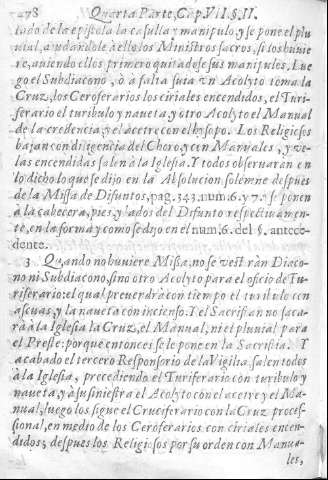 278 Quarta Parte, Cap. VII. §. II.
tado de la epistola la casulla y manipulo, y se pone el plu
vial, ayudandole à ello los Ministros sacros, si los huvie
re, aviendo ellos primero quitadose sus manipules. Lue
go el Subdiacono, ò a falta suya vn Acolyto toma la
Cruz, los Ceroferarios los ciriales encendidos, el Turi-
ferario el turibulo y naveta, y otro Acolyto el Manual
de la credencia, y el acetre con el hysopo. Los Religiosos
baxan con diligencia del Choro, y con Manuales, y ve-
las encendidas salen à la Iglesia. Y todos observarán en
lo dicho lo que se dijo en la Absolucion solemne despues
de la Missa de Difuntos, pag. 343. num. 6. y 7. y se ponen
à la cabecera, pies, y lados del Difunto respectivamen-
te, en la forma y como se dijo en el num. 6. del §. antece-
dente.
3 Quando no huviere Missa, no se vestirán Diaco-
no ni Subdiacono, sino otro Acolyto para el oficio de Tu-
riferario: el qual prevendrà con tiempo el turibulo con
ascuas, y la naveta con incienso. Y el Sacristan no saca-
rà à la Iglesia la Cruz, el Manual, ni el pluvial para
el Preste: porque entonces se le pone en la Sacristia. Y
acabado el tercero Responsorio de la Vigilia, salen todos
à la Iglesia, precediendo el Turiferario con turibulo y
naveta, y à su siniestra el Acolyto con el acetre y el Ma-
nual, luego los sigue el Cruciferario con la Cruz proces-
sional, en medio de los Ceroferarios con ciriales encen-
didos; despues los Religiosos por su orden con Manua-
les,